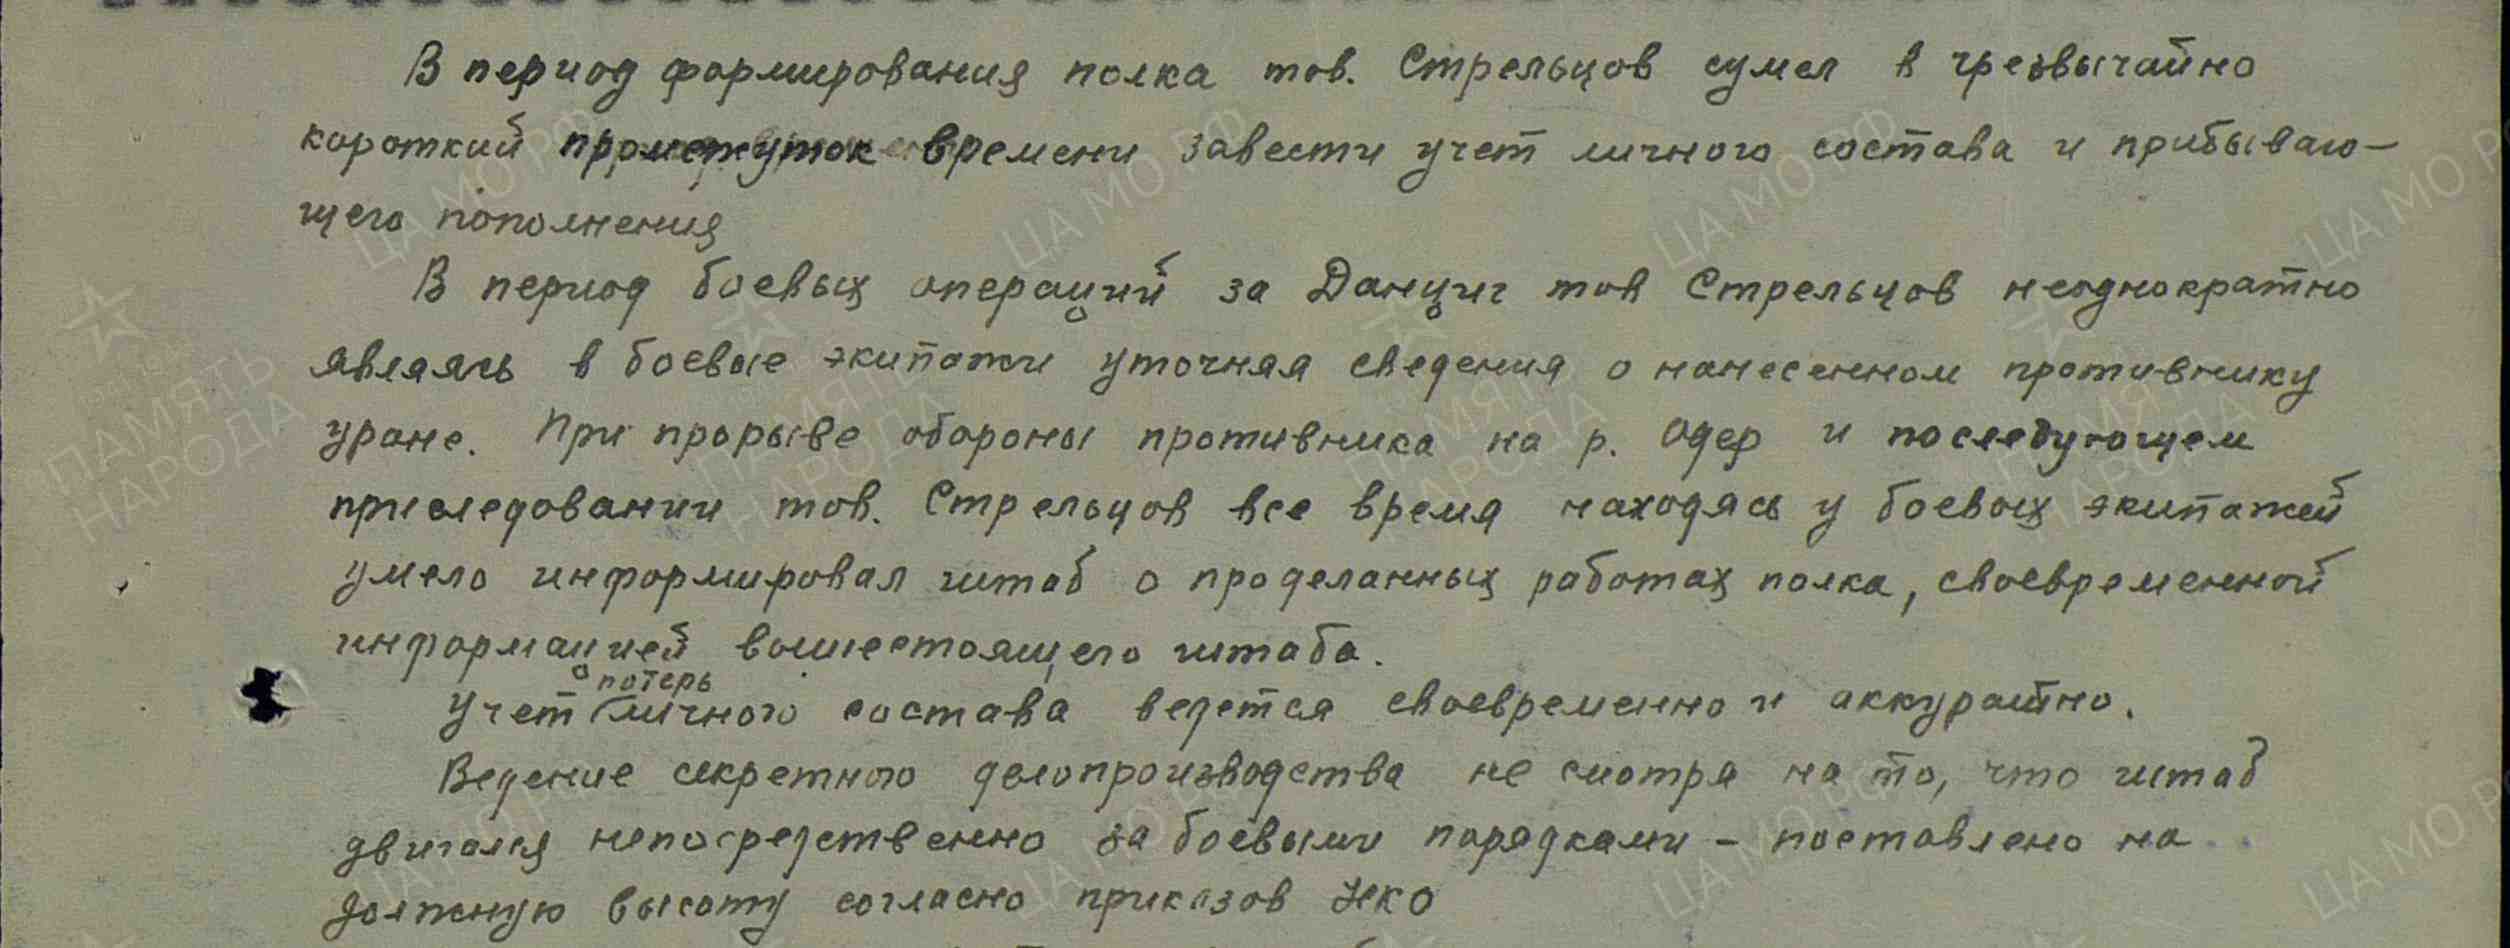 В период формирования полка тов. Стрельцов сумел в чрезвычайно
короткий промежуток времени завести учет личного состава и прибываю-
щего пополнения
В период боевых операций за Данциг тов Стрельцов неоднократно
являясь в боевые экипажи уточняя сведения о нанесенном противнику
уроне. При прорыве обороны противника на р. Одер и последующем
приследовании тов. Стрельцов все время находясь у боевых экипажей
умело информировал штаб о проделанных работах полка, своевременной
информацией вышестоящего штаба.
потерь
Учет личного состава ведется своевременно и аккуратно.
Ведение секретного делопроизводства не смотря на то, что штаб
двигался непосредственно за боевыми порядками - поставлено на
должную высоту согласно приказов НКО
ЦА МО РФ
ПАМЯТЬ
НАРОДА